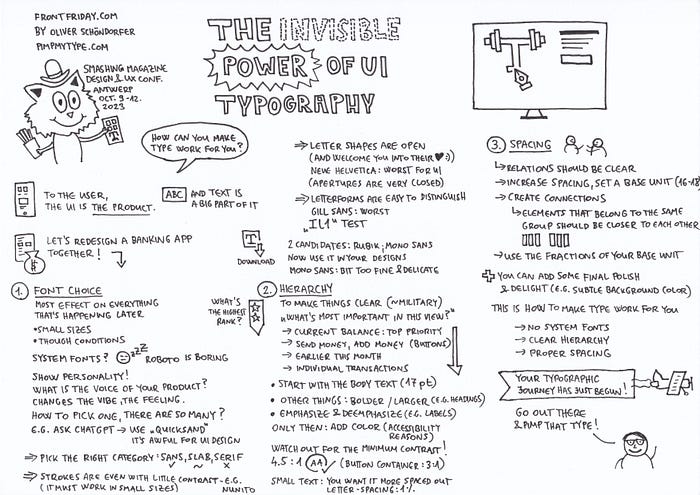 FRONTFRIDAY.COM
BY OLIVER SCHÖNDORFER
PIMPMYTYPE.COM
SMASHING MAGAZINE
DESIGN & UX CONF.
ANTWERP
OCT. 9-12.
2023
THE INVISIBLE
POWER OF UI
TYPOGRAPHY
T
HOW CAN YOU MAKE
TYPE WORK FOR YOU?
TO THE USER,
THE UI IS THE PRODUCT.
ABC AND TEXT IS
A BIG PART OF IT
LET'S REDESIGN A BANKING APP
TOGETHER!
$
T
DOWNLOAD
1. FONT CHOICE
MOST EFFECT ON EVERYTHING
THAT'S HAPPENING LATER
• SMALL SIZES
• THOUGH CONDITIONS
SYSTEM FONTS? ZZZ ROBOTO IS BORING
SHOW PERSONALITY!
WHAT IS THE VOICE OF YOUR PRODUCT?
CHANGES THE VIBE, THE FEELING.
HOW TO PICK ONE, THERE ARE SO MANY?
E.G. ASK CHATGPT → USE „QUICKSAND"
IT'S AWFUL FOR UI DESIGN
⇒ PICK THE RIGHT CATEGORY: SANS, SLAB, SERIF
✓ ~ X
⇒ STROKES ARE EVEN WITH LITTLE CONTRAST - E.G.
(IT MUST WORK IN SMALL SIZES) NUNITO
⇒ LETTER SHAPES ARE OPEN
(AND WELCOME YOU INTO THEIR ♥ :))
NEUE HELVETICA: WORST FOR UI
(APERTURES ARE VERY CLOSED)
⇒ LETTERFORMS ARE EASY TO DISTINGUISH
GILL SANS: WORST
„IL1" TEST
2 CANDIDATES: RUBIK; MONO SANS
NOW USE IT IN YOUR DESIGNS
MONO SANS: BIT TOO FINE & DELICATE
2. HIERARCHY
WHAT'S
THE HIGHEST
RANK?
TO MAKE THINGS CLEAR (~MILITARY)
„WHAT'S MOST IMPORTANT IN THIS VIEW?"
→ CURRENT BALANCE: TOP PRIORITY
→ SEND MONEY, ADD MONEY (BUTTONS)
→ EARLIER THIS MONTH
→ INDIVIDUAL TRANSACTIONS
• START WITH THE BODY TEXT (17 pt)
• OTHER THINGS: BOLDER / LARGER (E.G. HEADINGS)
• EMPHASIZE & DEEMPHASIZE (E.G. LABELS)
ONLY THEN: ADD COLOR (ACCESSIBILITY
REASONS)
WATCH OUT FOR THE MINIMUM CONTRAST!
4.5:1 AA ✓ (BUTTON CONTAINER: 3:1)
SMALL TEXT: YOU WANT IT MORE SPACED OUT
LETTER-SPACING: 1%
3. SPACING
↳ RELATIONS SHOULD BE CLEAR
→ INCREASE SPACING, SET A BASE UNIT (16-18)
→ CREATE CONNECTIONS
↳ ELEMENTS THAT BELONG TO THE SAME
GROUP SHOULD BE CLOSER TO EACH OTHER
→ USE THE FRACTIONS OF YOUR BASE UNIT
+ YOU CAN ADD SOME FINAL POLISH
& DELIGHT (E.G. SUBTLE BACKGROUND COLOR)
THIS IS HOW TO MAKE TYPE WORK FOR YOU
→ NO SYSTEM FONTS
→ CLEAR HIERARCHY
→ PROPER SPACING
YOUR TYPOGRAPHIC
JOURNEY HAS JUST BEGUN!
GO OUT THERE
& PIMP THAT TYPE!